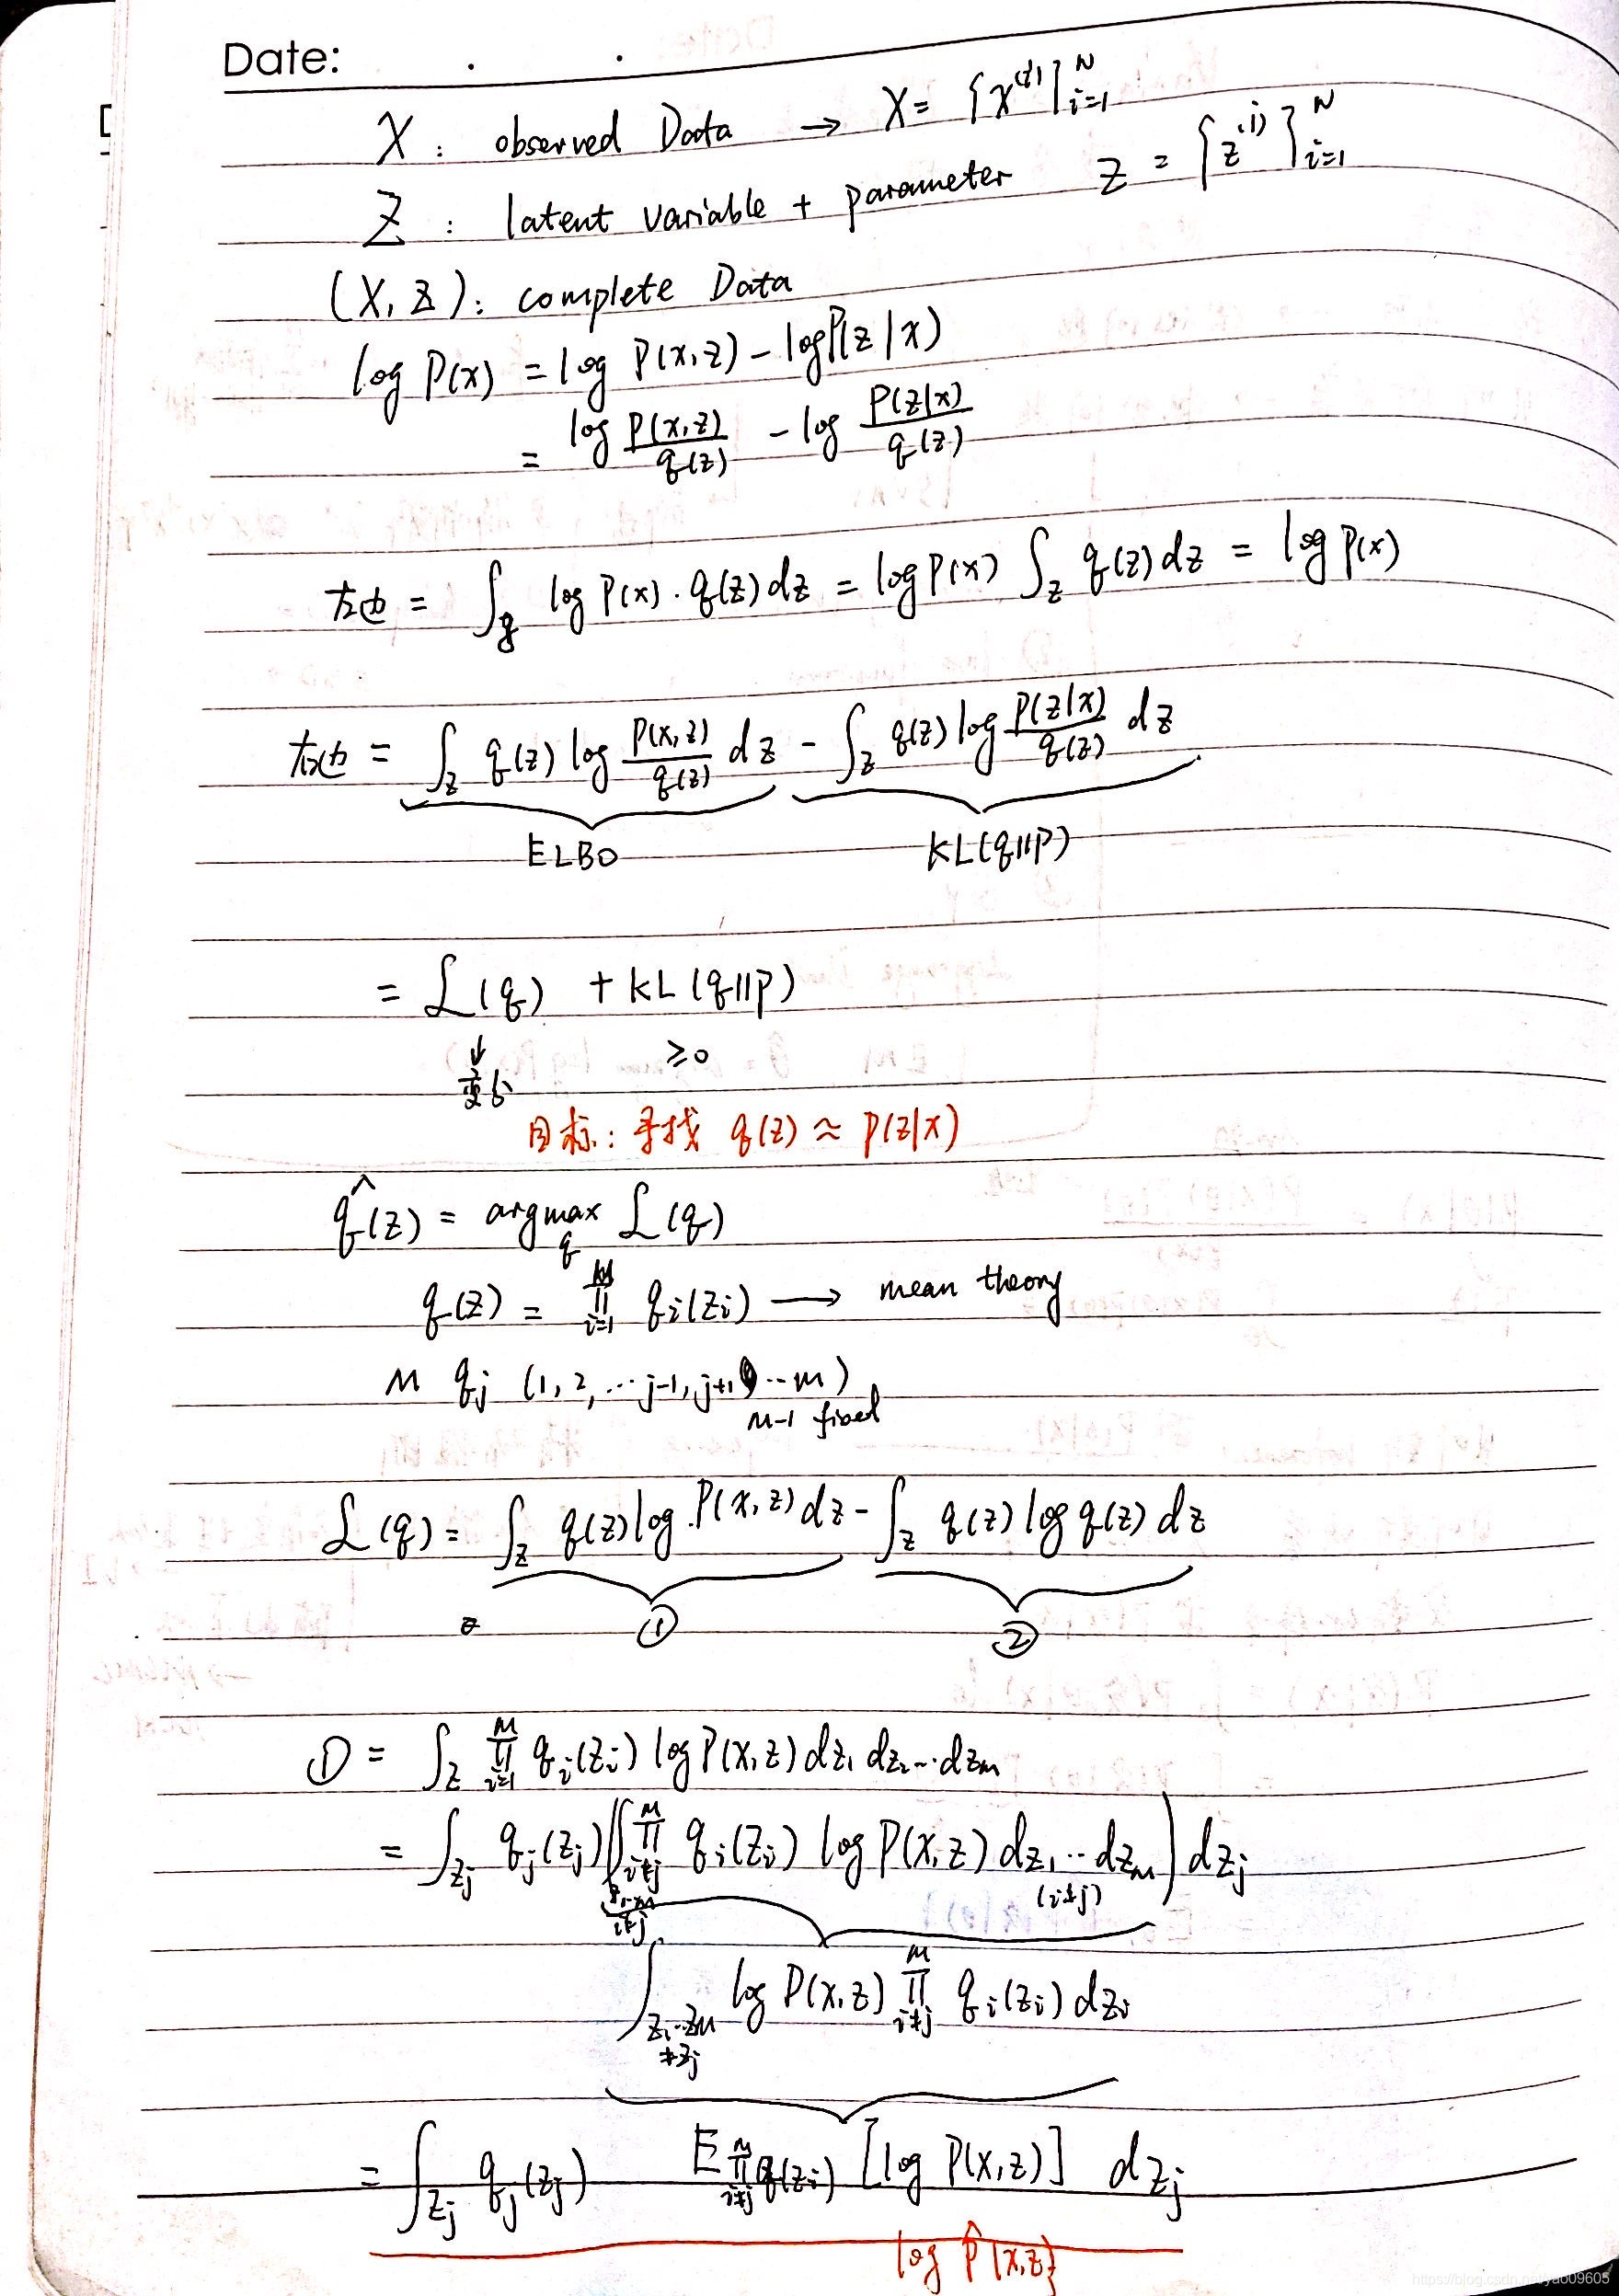 Date: . .
X : observed Data → X = {x^(i)}_{i=1}^N
Z : latent variable + parameter Z = {z^(i)}_{i=1}^N
(X, Z): complete Data
log P(x) = log P(x,z) - log P(z|x)
= log P(x,z)/q(z) - log P(z|x)/q(z)
左边 = ∫_z log P(x) · q(z) dz = log P(x) ∫_z q(z) dz = log P(x)
右边 = ∫_z q(z) log P(x,z)/q(z) dz - ∫_z q(z) log P(z|x)/q(z) dz
ELBO KL(q||p)
= L(q) + KL(q||p)
↓ ≥0
变分
目标: 寻找 q(z) ≈ P(z|x)
q̂(z) = argmax_q L(q)
q(z) = ∏_{i=1}^M q_i(z_i) → mean theory
M q_j (1, 2, ... j-1, j+1 ... m)
M-1 fixed
L(q) = ∫_z q(z) log P(x,z) dz - ∫_z q(z) log q(z) dz
= ① ②
① = ∫_z ∏_{i=1}^M q_i(z_i) log P(x,z) dz_1 dz_2 ... dz_m
= ∫_{z_j} q_j(z_j) (∫ ∏_{i≠j}^M q_i(z_i) log P(x,z) dz_1 ... dz_m) dz_j
(i≠j)
i≠j
∫_{z_1...z_M ≠z_j} log P(x,z) ∏_{i≠j}^M q_i(z_i) dz_i
= ∫_{z_j} q_j(z_j) E_{∏_{i≠j}^M q(z_i)} [log P(x,z)] dz_j
log P̂(x,z)